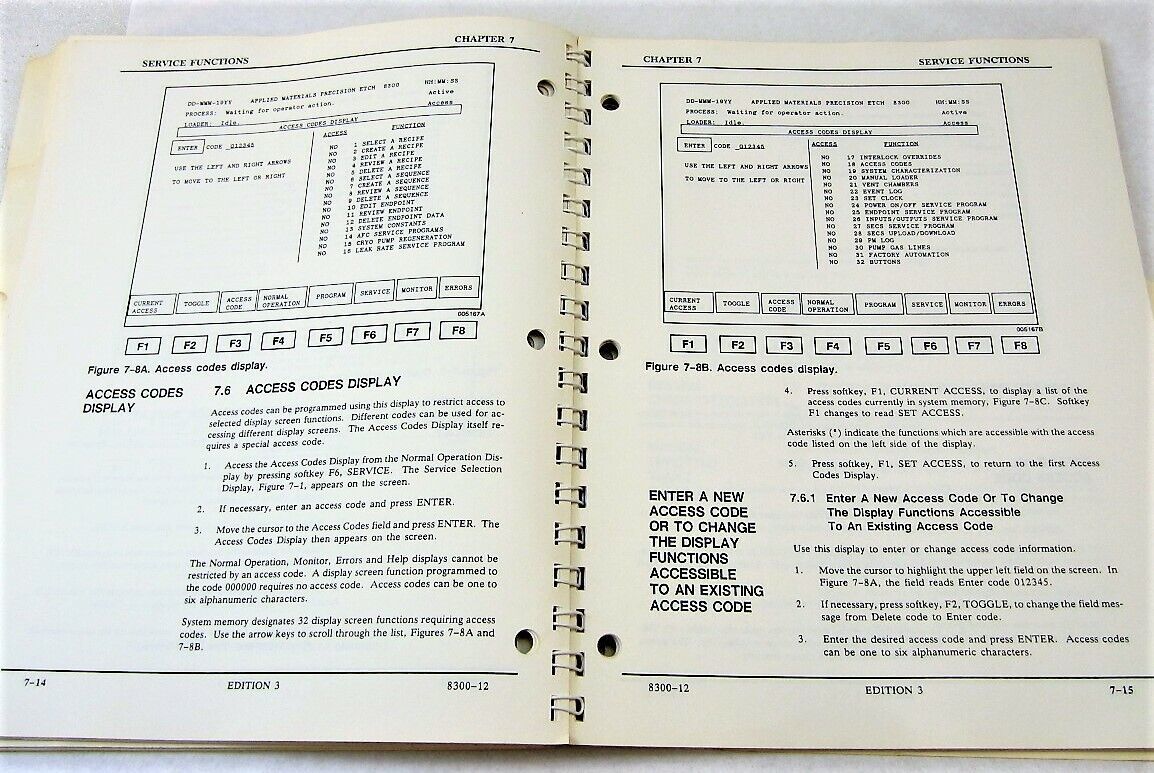 CHAPTER 7
SERVICE FUNCTIONS
DD-MMM-19YY APPLIED MATERIALS PRECISION ETCH 8300 HH:MM:SS
PROCESS: Waiting for operator action. Active
LOADER: Idle. Access
ACCESS CODES DISPLAY
ENTER CODE 012345
ACCESS FUNCTION
USE THE LEFT AND RIGHT ARROWS
TO MOVE TO THE LEFT OR RIGHT
NO 1 SELECT A RECIPE
NO 2 CREATE A RECIPE
NO 3 EDIT A RECIPE
NO 4 REVIEW A RECIPE
NO 5 DELETE A RECIPE
NO 6 SELECT A SEQUENCE
NO 7 CREATE A SEQUENCE
NO 8 REVIEW A SEQUENCE
NO 9 DELETE A SEQUENCE
NO 10 EDIT ENDPOINT
NO 11 REVIEW ENDPOINT
NO 12 DELETE ENDPOINT DATA
NO 13 SYSTEM CONSTANTS
NO 14 AFC SERVICE PROGRAMS
NO 15 CRYO PUMP REGENERATION
NO 16 LEAK RATE SERVICE PROGRAM
CURRENT ACCESS TOGGLE ACCESS CODE NORMAL OPERATION PROGRAM SERVICE MONITOR ERRORS
005167A
F1 F2 F3 F4 F5 F6 F7 F8
Figure 7-8A. Access codes display.
ACCESS CODES
DISPLAY
7.6 ACCESS CODES DISPLAY
Access codes can be programmed using this display to restrict access to
selected display screen functions. Different codes can be used for ac-
cessing different display screens. The Access Codes Display itself re-
quires a special access code.
1. Access the Access Codes Display from the Normal Operation Dis-
play by pressing softkey F6, SERVICE. The Service Selection
Display, Figure 7-1, appears on the screen.
2. If necessary, enter an access code and press ENTER.
3. Move the cursor to the Access Codes field and press ENTER. The
Access Codes Display then appears on the screen.
The Normal Operation, Monitor, Errors and Help displays cannot be
restricted by an access code. A display screen function programmed to
the code 000000 requires no access code. Access codes can be one to
six alphanumeric characters.
System memory designates 32 display screen functions requiring access
codes. Use the arrow keys to scroll through the list, Figures 7-8A and
7-8B.
7-14 EDITION 3 8300-12
CHAPTER 7 SERVICE FUNCTIONS
DD-MMM-19YY APPLIED MATERIALS PRECISION ETCH 8300 HH:MM:SS
PROCESS: Waiting for operator action. Active
LOADER: Idle. Access
ACCESS CODES DISPLAY
ENTER CODE 012345
ACCESS FUNCTION
USE THE LEFT AND RIGHT ARROWS
TO MOVE TO THE LEFT OR RIGHT
NO 17 INTERLOCK OVERRIDES
NO 18 ACCESS CODES
NO 19 SYSTEM CHARACTERIZATION
NO 20 MANUAL LOADER
NO 21 VENT CHAMBERS
NO 22 EVENT LOG
NO 23 SET CLOCK
NO 24 POWER ON/OFF SERVICE PROGRAM
NO 25 ENDPOINT SERVICE PROGRAM
NO 26 INPUTS/OUTPUTS SERVICE PROGRAM
NO 27 SECS SERVICE PROGRAM
NO 28 SECS UPLOAD/DOWNLOAD
NO 29 PM LOG
NO 30 PUMP GAS LINES
NO 31 FACTORY AUTOMATION
NO 32 BUTTONS
CURRENT ACCESS TOGGLE ACCESS CODE NORMAL OPERATION PROGRAM SERVICE MONITOR ERRORS
005167B
F1 F2 F3 F4 F5 F6 F7 F8
Figure 7-8B. Access codes display.
4. Press softkey, F1, CURRENT ACCESS, to display a list of the
access codes currently in system memory, Figure 7-8C. Softkey
F1 changes to read SET ACCESS.
Asterisks (*) indicate the functions which are accessible with the access
code listed on the left side of the display.
5. Press softkey, F1, SET ACCESS, to return to the first Access
Codes Display.
ENTER A NEW
ACCESS CODE
OR TO CHANGE
THE DISPLAY
FUNCTIONS
ACCESSIBLE
TO AN EXISTING
ACCESS CODE
7.6.1 Enter A New Access Code Or To Change
The Display Functions Accessible
To An Existing Access Code
Use this display to enter or change access code information.
1. Move the cursor to highlight the upper left field on the screen. In
Figure 7-8A, the field reads Enter code 012345.
2. If necessary, press softkey, F2, TOGGLE, to change the field mes-
sage from Delete code to Enter code.
3. Enter the desired access code and press ENTER. Access codes
can be one to six alphanumeric characters.
8300-12 EDITION 3 7-15